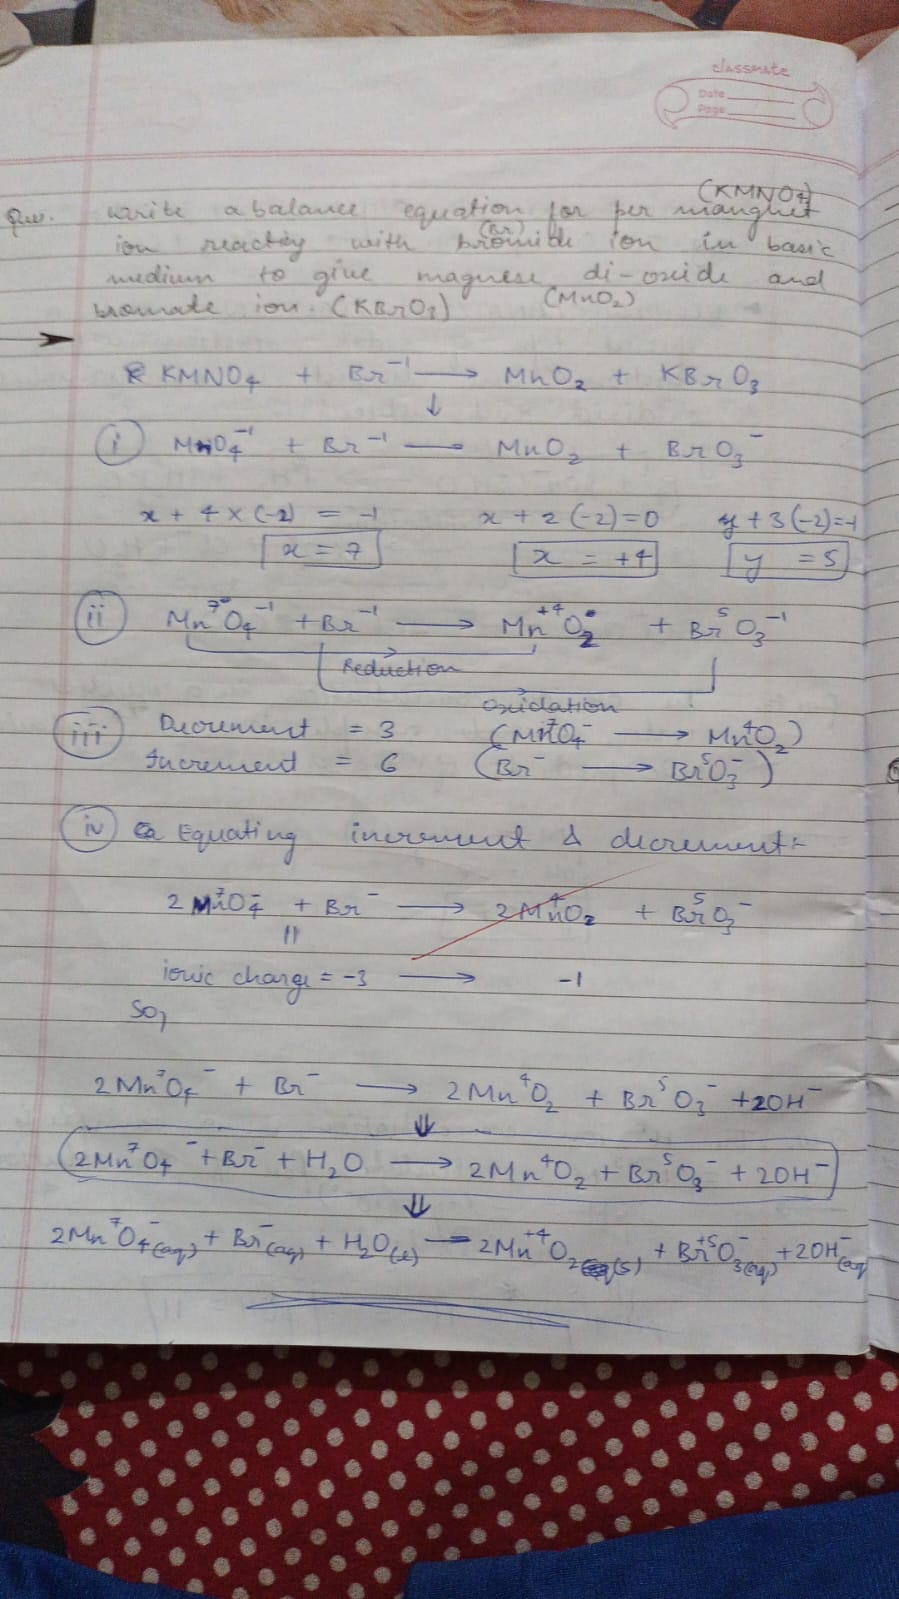 classmate
Date
Page
(KMNO4)
Que. Write a balance equation for per manghet
(Br)
ion reacting with bromide ion in basic
medium to give magnese di-oxide and
bromate ion. (KBrO3) (MnO2)
KMNO4 + Br⁻¹ ⟶ MnO2 + KBrO3
↓
(i) MnO4⁻¹ + Br⁻¹ — MnO2 + BrO3⁻
x + 4 × (-2) = -1 x + 2 (-2) = 0 y + 3 (-2) = -1
x = 7 x = +4 y = 5
(ii) Mn⁷O4⁻¹ + Br⁻¹ ⟶ Mn⁺⁴O2 + Br⁵O3⁻¹
Reduction
Oxidation
(iii) Decrement = 3 (Mn⁷O4⁻ ⟶ Mn⁴O2)
Increment = 6 (Br⁻ ⟶ Br⁵O3⁻)
(iv) Equating increment & decrement:-
2 Mn⁷O4⁻ + Br⁻ ⟶ 2 Mn⁴O2 + Br⁵O3⁻
ionic charge = -3 ⟶ -1
So,
2 Mn⁷O4⁻ + Br⁻ ⟶ 2 Mn⁴O2 + Br⁵O3⁻ + 2OH⁻
⇓
2 Mn⁷O4⁻ + Br⁻ + H2O ⟶ 2 Mn⁴O2 + Br⁵O3⁻ + 2OH⁻
⇓
2 Mn⁷O4⁻(aq) + Br⁻(aq) + H2O(l) ⟶ 2 Mn⁺⁴O2(s) + Br⁺⁵O3⁻(aq) + 2OH⁻(aq